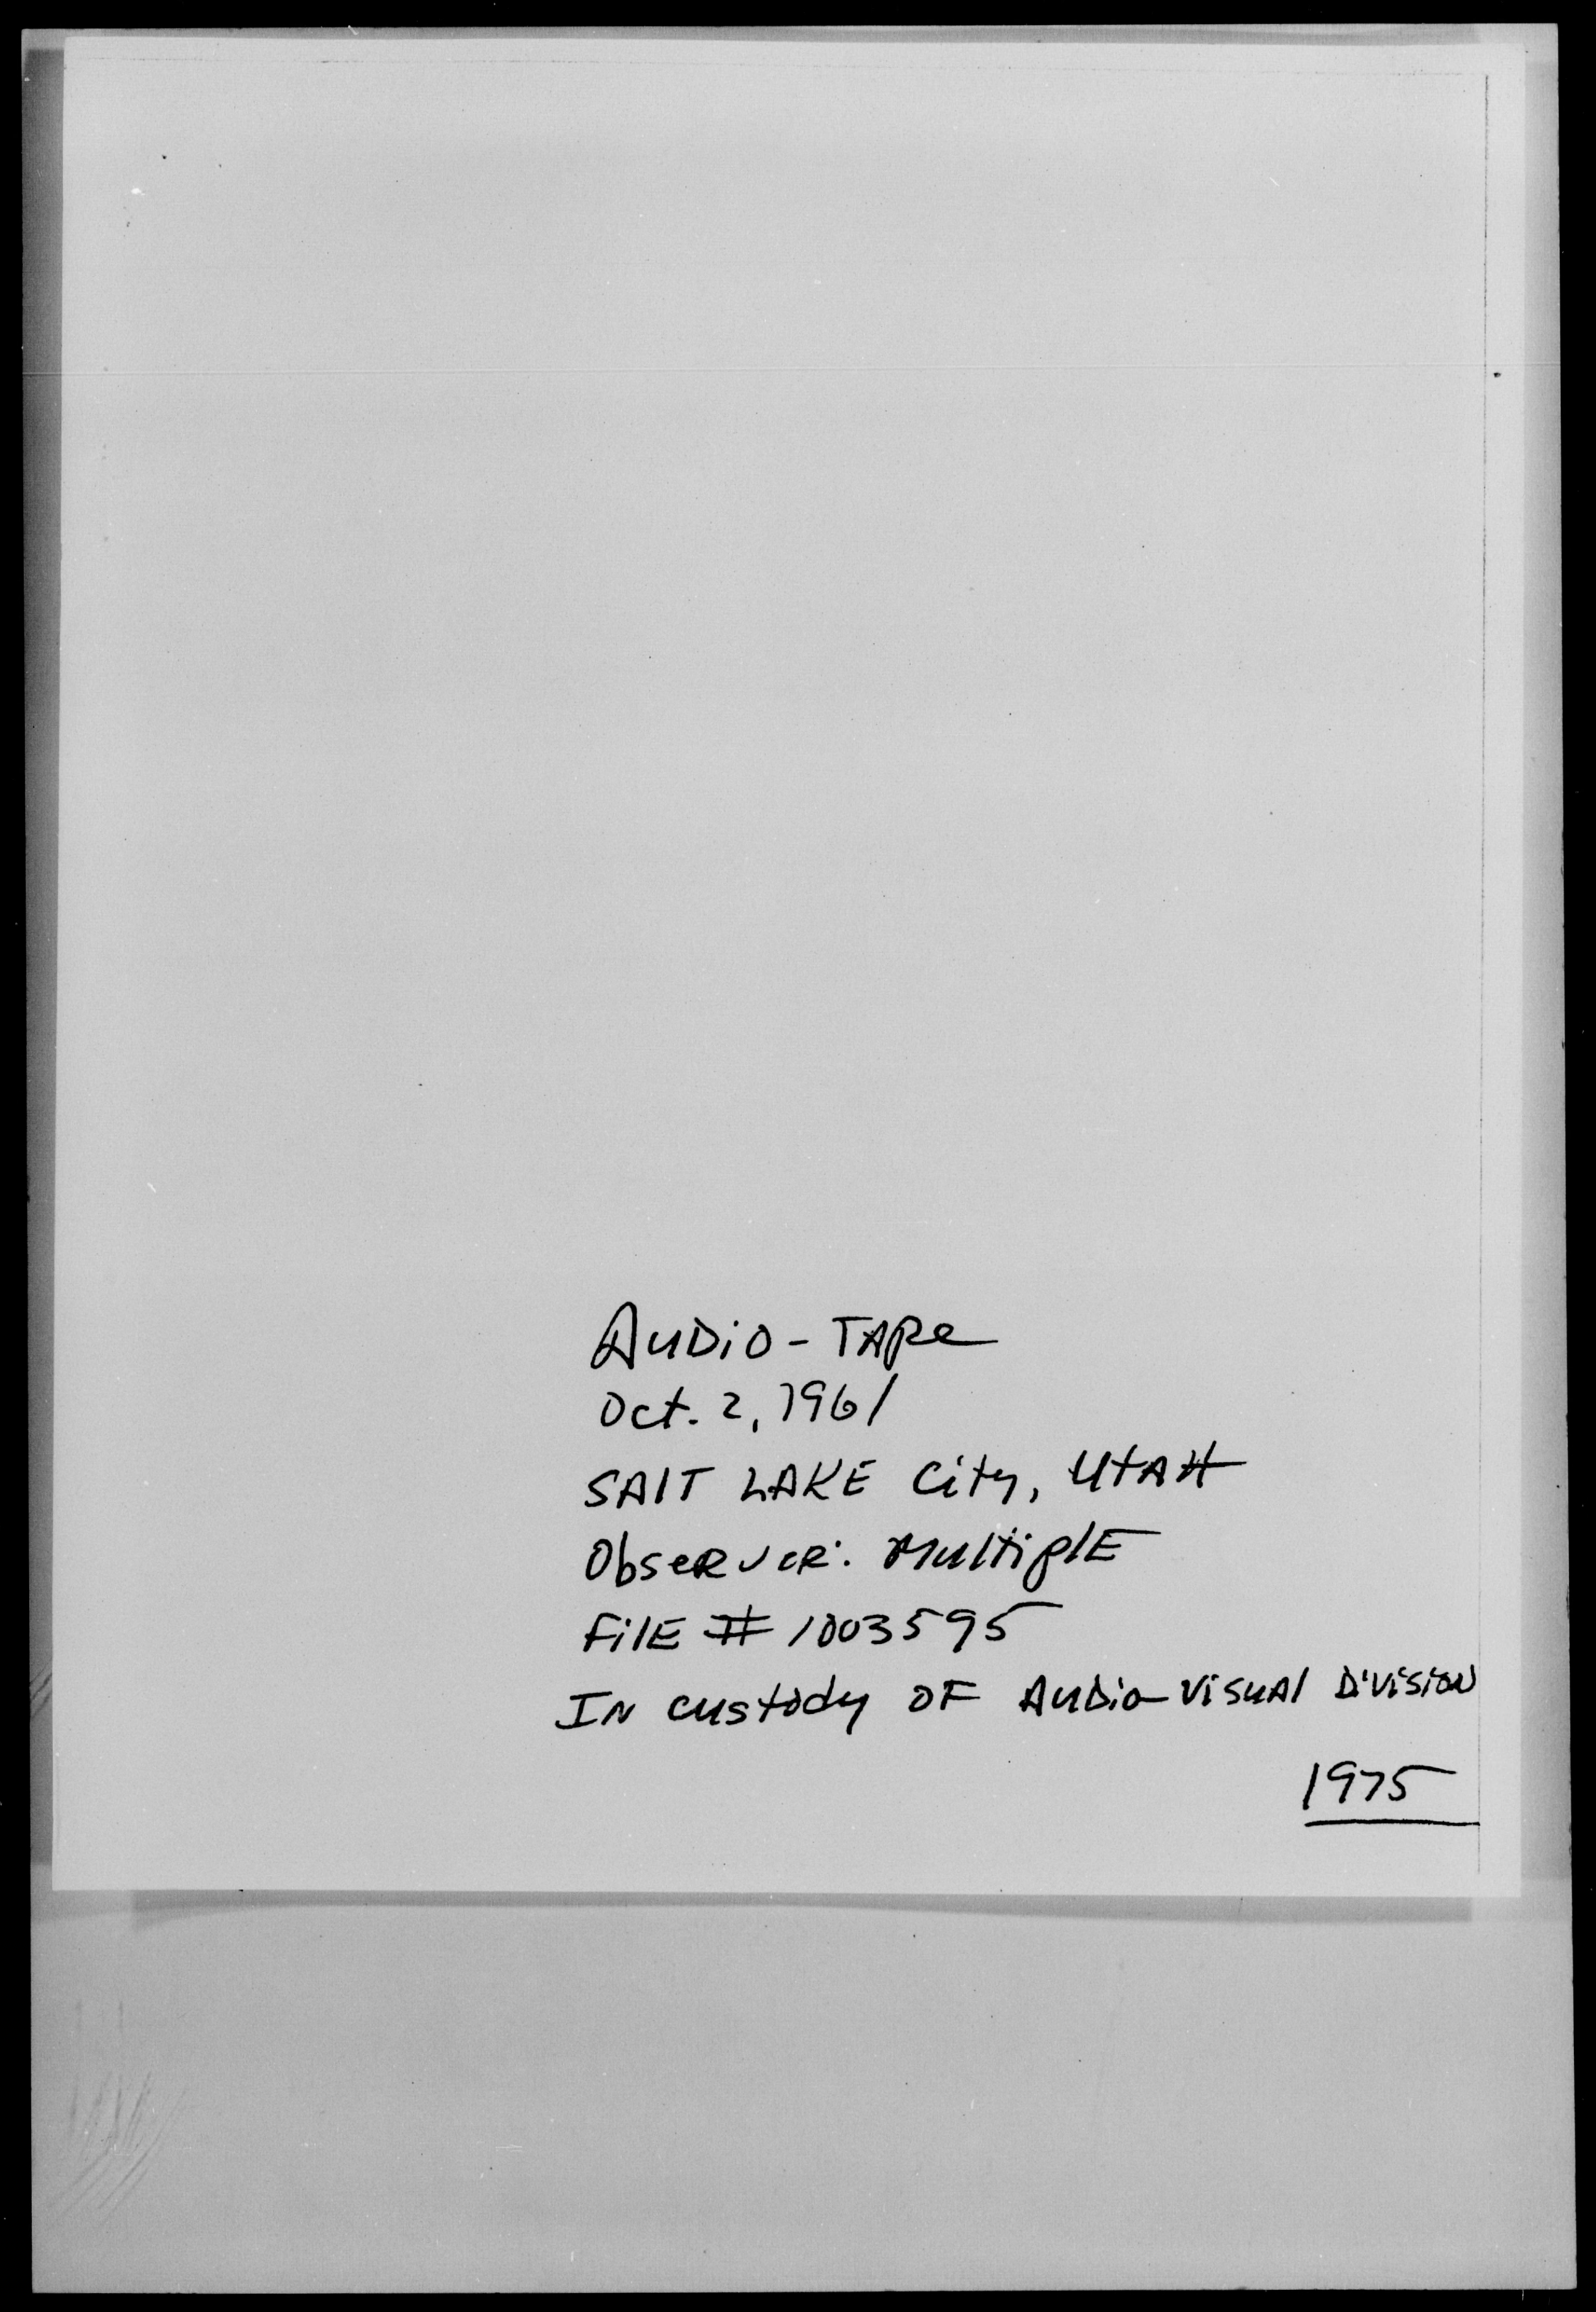 AUDiO - TAPe
Oct. 2, 1961
SAlT LAKE City, UtAH
ObseRveR: MultiplE
FilE # 1003595
IN custody OF AuDio-VisuAl DivisioN
1975